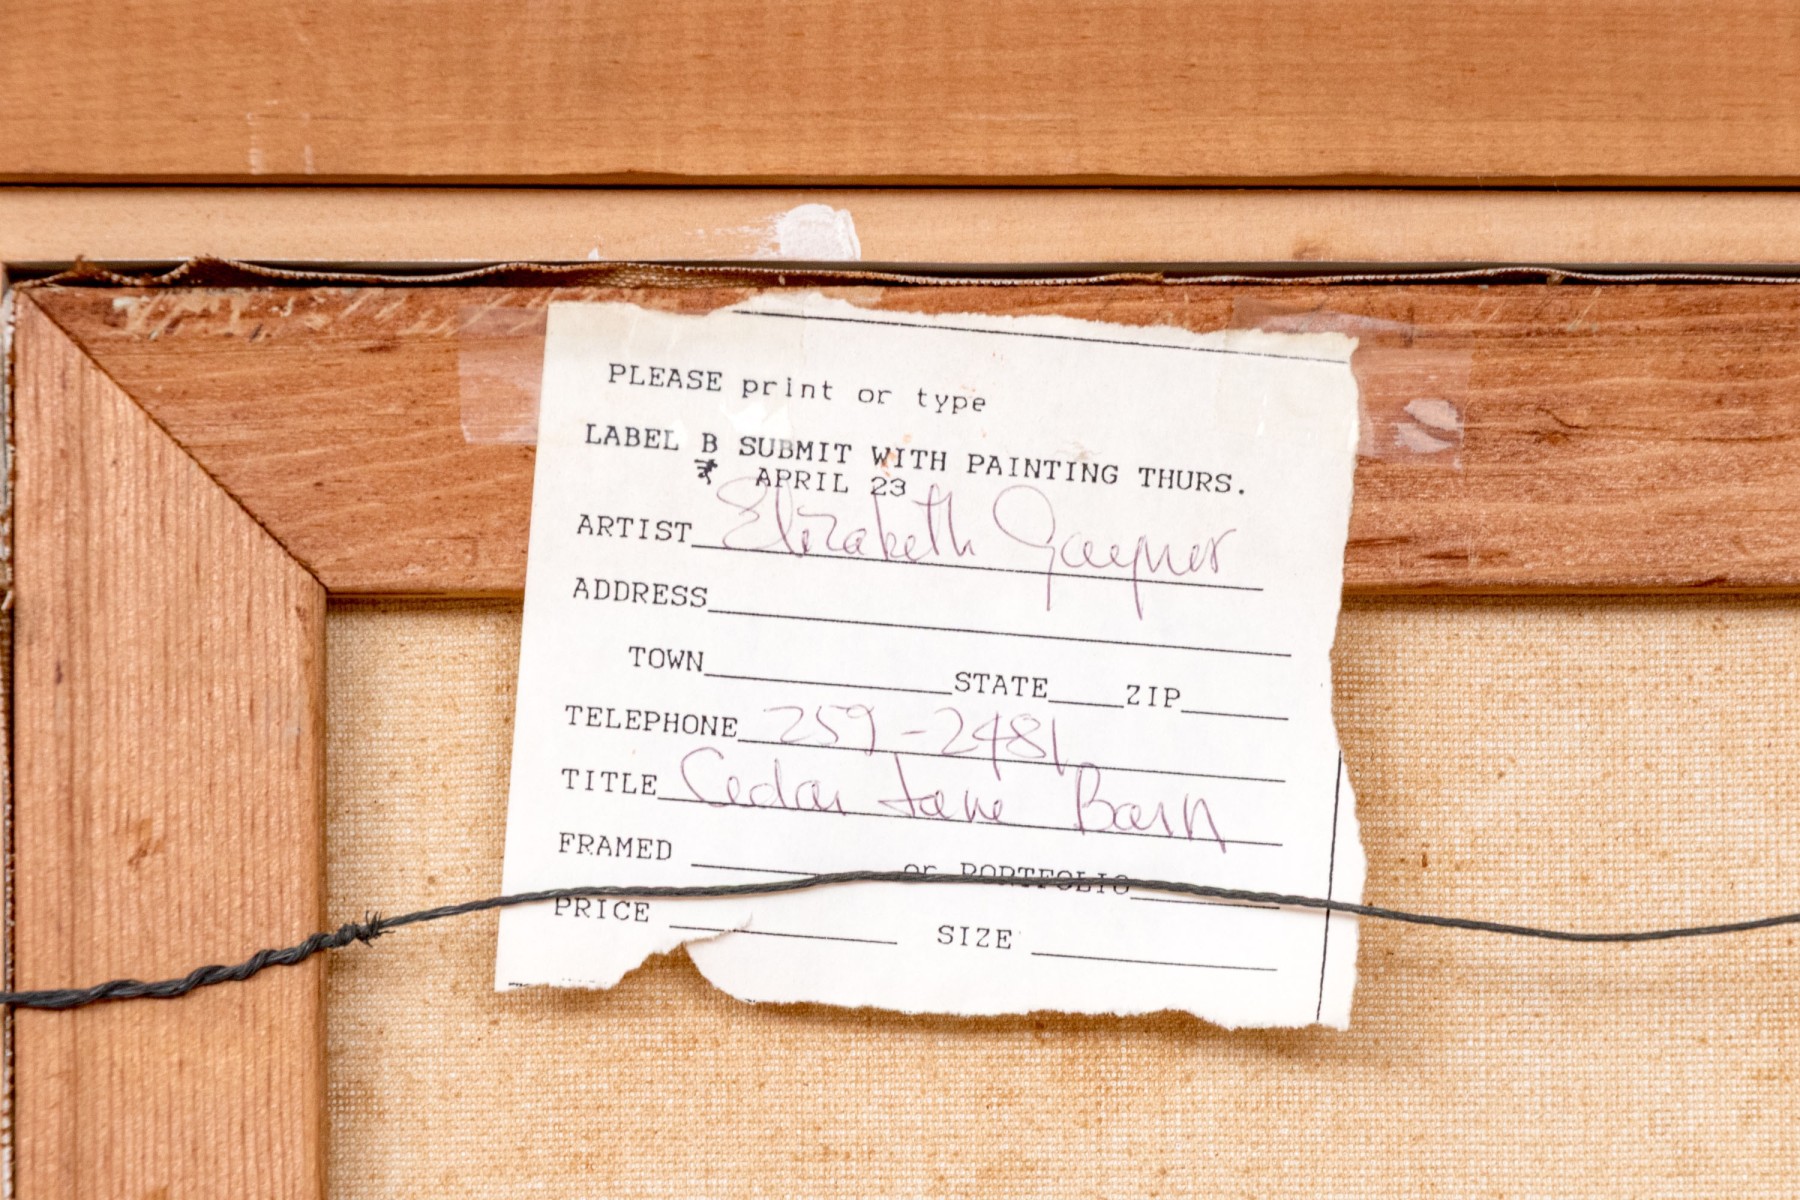 PLEASE print or type
LABEL B SUBMIT WITH PAINTING THURS.
* APRIL 23
ARTIST Elizabeth Gaynor
ADDRESS
TOWN STATE ZIP
TELEPHONE 259-2481
TITLE Cedar Lane Barn
FRAMED or PORTFOLIO
PRICE SIZE